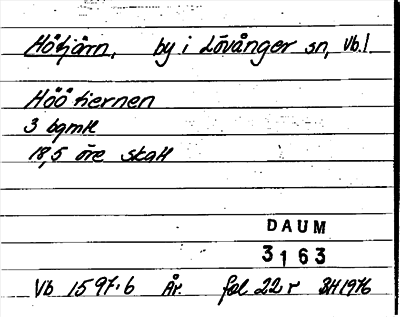 Hötjärn, by i Lövånger sn, Vb.l.
Höö tiernen
3 bgmtl
18,5 öre skatt
DAUM
3163
Vb 1597:6 År. fol 22 r BH 1976